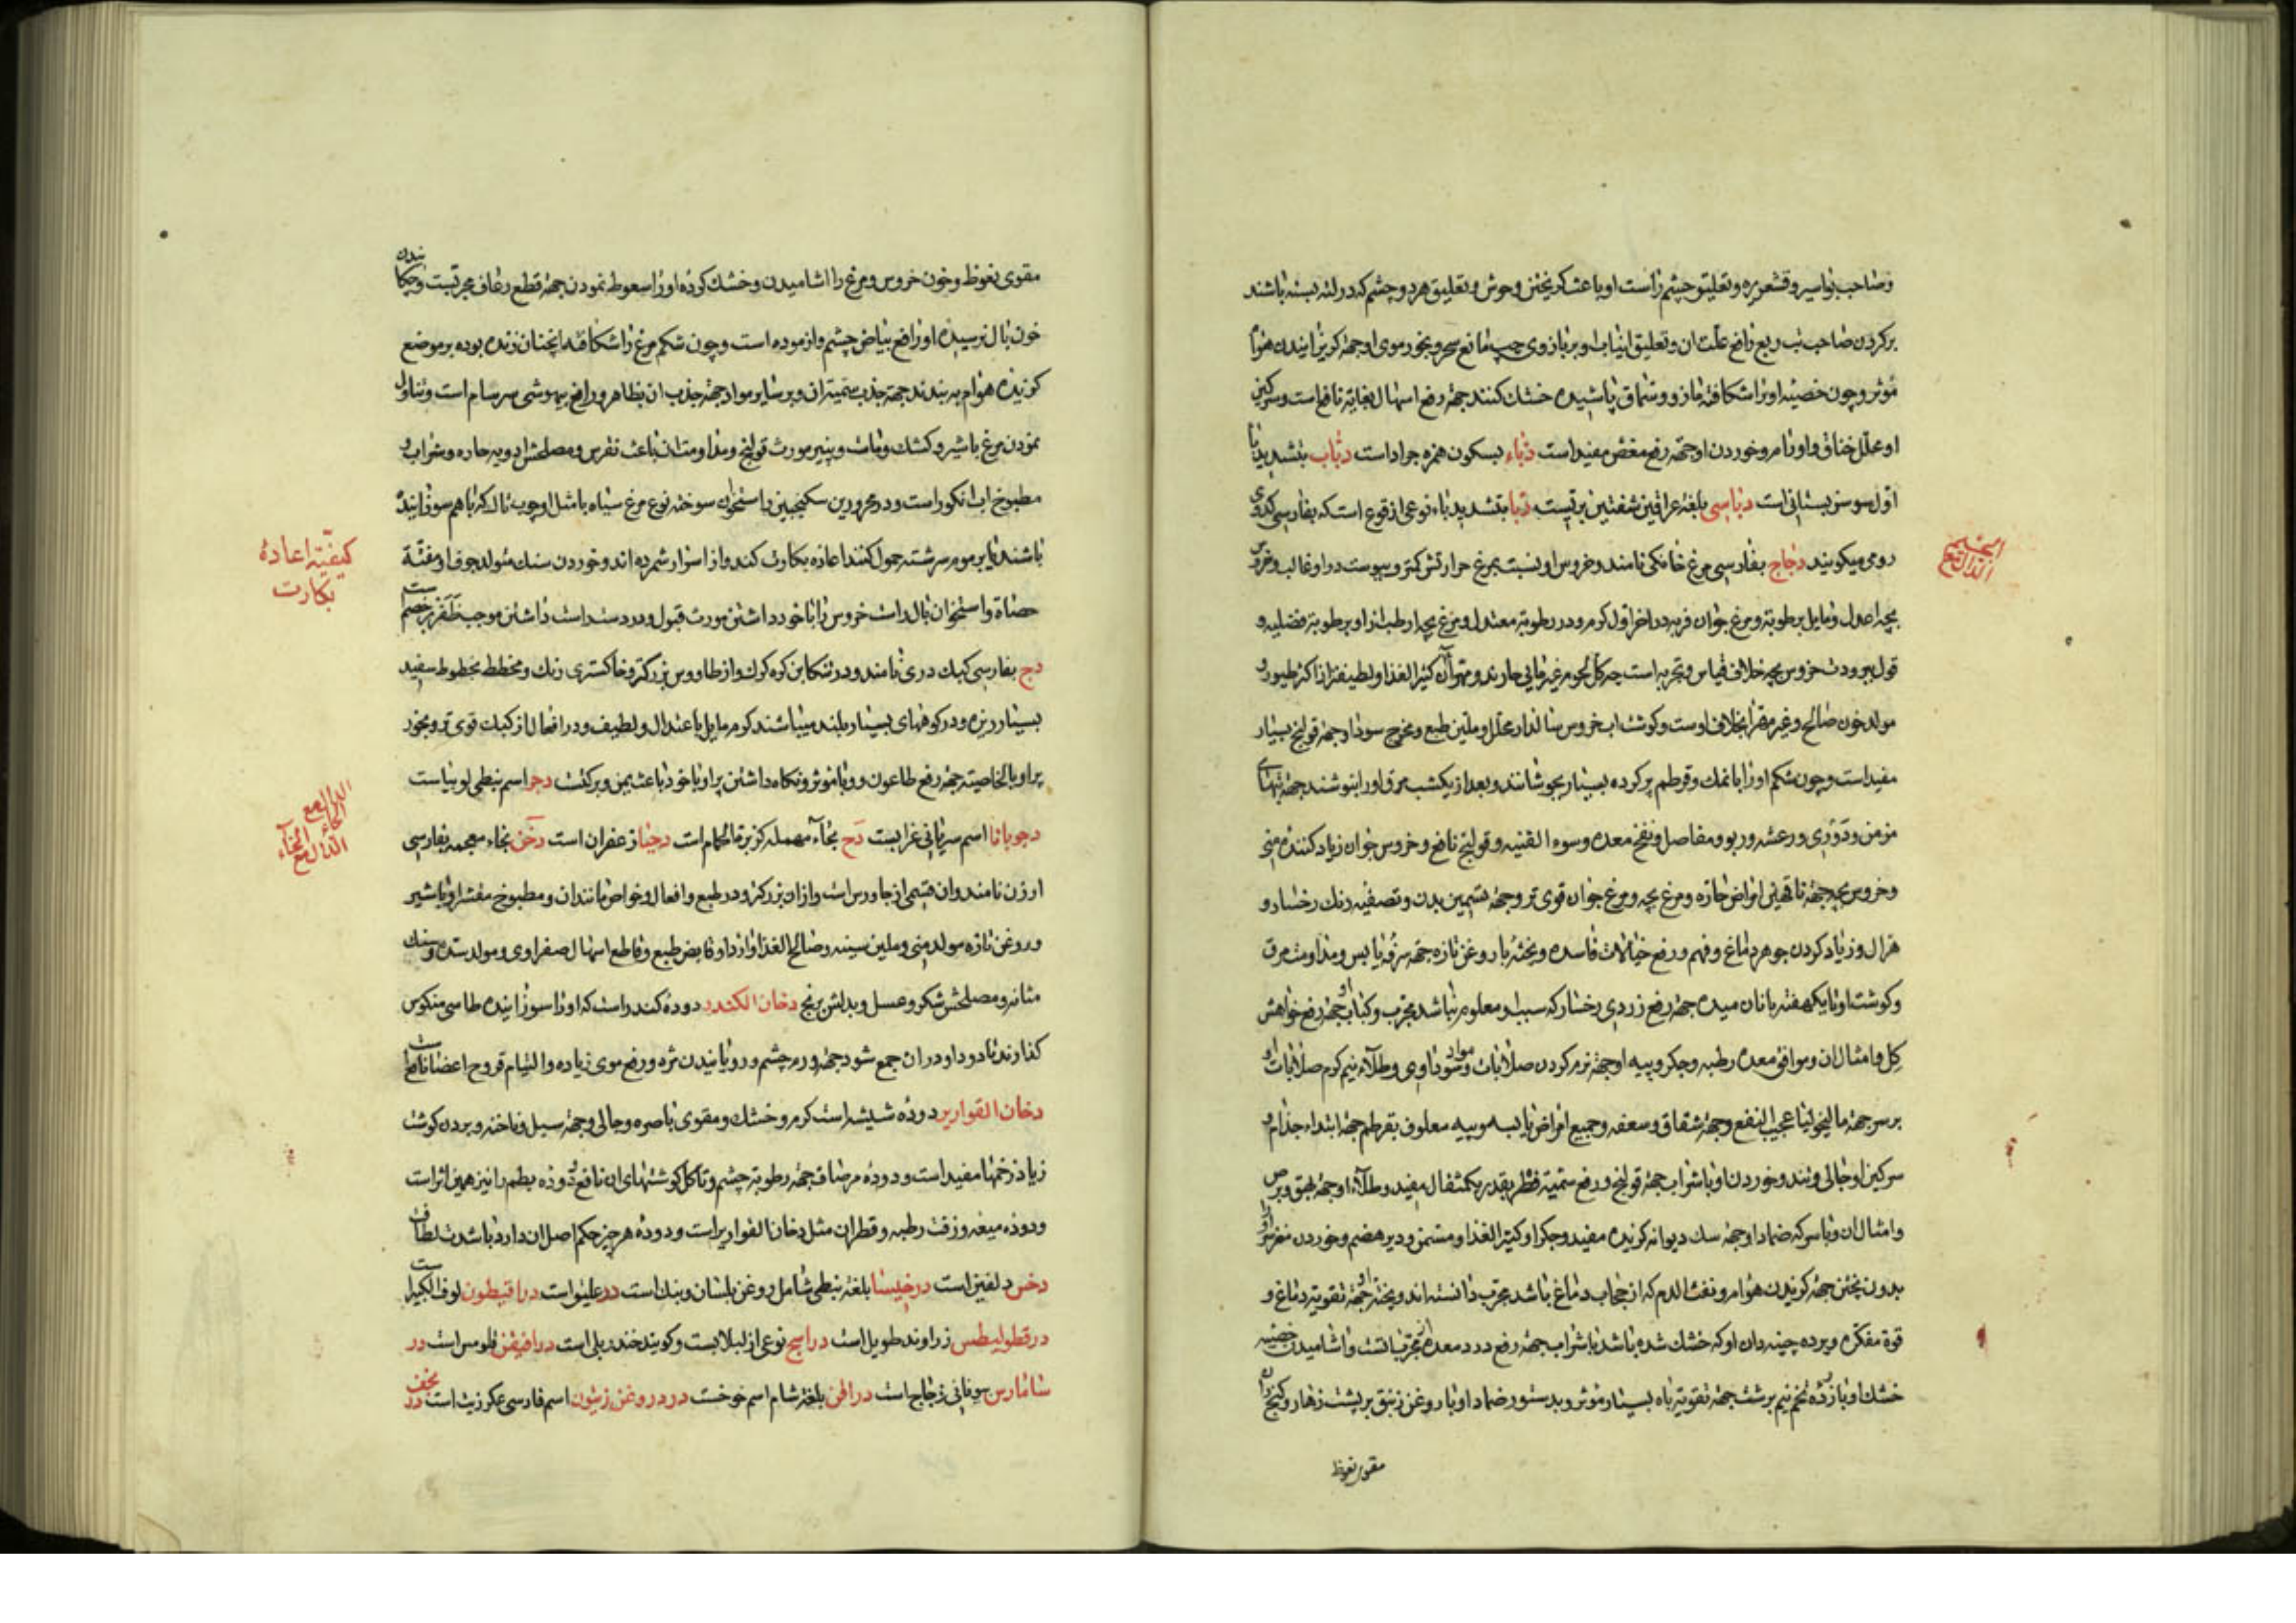 و صاحب بواسیر و قشعریره و تعلیق چشم راست او باعث کریختن وحوش و تعلیق هر دو چشم که در لته بسته باشند
بر کردن صاحب تب ربع رافع علت ان و تعلیق انیاب او بر بازوی چپ مانع سحر و بخور موی او جهة کریزانیدن هوام
مؤثر و چون خصیه او را شکافته مازو و سماق پاشیده خشک کنند جهة رفع اسهال بغایة نافع است و سرکین
او محلل خناق و اورام و خوردن او جهة رفع مغص مفید است دباء بسکون همزه جراد است دباب بتشدید با
اول سوسن بستانی است دباسی بلغة عراقین شفتین بریست دبا بتشدید باء نوعی از قرع است که بفارسی کدوی
رومی میکویند دجاج بفارسی مرغ خانکی نامند و خروس او نسبت بمرغ حرارتش کمتر و یبوست در او غالب و خروس
بچه اعدل و مایل برطوبة و مرغ جوان فربه در اخر اول کرم و در رطوبة معتدل و مرغ بچه ارطب از او برطوبة فضلیه و
قول ببرودت خروس بچه خلاف قیاس و تجربه است چه کل لحوم غیر مایی حارند و مهرای ان کثیر الغذا و لطیفتر از اکثر طیور و
مولد خون صالح و غیر مهرا بخلاف اوست و کوشت اب خروس سالدار محلل و ملین طبع و مخرج سودا و جهة قولنج بسیار
مفید است و چون شکم او را با نمک و قرطم پر کرده بسیار بجوشانند و بعد از یکشب مرق او را بنوشند جهة تبهای
مزمن و دوری و رعشه و ربو و مفاصل و نفخ معده و سوء القنیه و قولنج نافع و خروس جوان زیاد کننده منی
و خروس بچه جهة ناقهین امراض حاره و مرغ بچه و مرغ جوان قوی تر و جهة تسمین بدن و تصفیه رنک رخسار و
هزال و زیاد کردن جوهر دماغ و فهم و رفع خیالات فاسده و پخته با روغن تازه جهة سرفه یابس و مداومت مرق
و کوشت او تا یکهفته با نان میده جهة رفع زردی رخسار که سبب او معلوم نباشد مجرب و کباب او جهة رفع خواهش
کل و امثال ان و موافق معده رطبه و جکر و پیه او جهة نرم کردن صلابات و مواد سوداوی و طلاء نیم کرم صلابات او
بر سر جهة مالیخولیا عجیب النفع و جهة شقاق و سعفه و جمیع امراض یابسه و پیه معلوف بقرطم جهة ابتداء جذام و
سرکین او جالی و تند و خوردن او با شراب جهة قولنج و رفع سمیة فطر بقدر یکمثقال مفید و طلاء او جهة بهق و برص
و امثال ان و با سرکه ضمادا و جهة سک دیوانه کزیده مفید و جکر او کثیر الغذا و مسمن و دیر هضم و خوردن مغز سر او
بدون پختن جهة کزیدن هوام و نفث الدم که از حجاب دماغ باشد مجرب دانسته اند و پخته او جهة تقویة دماغ و
قوة مفکره و پرده چینه دان او که خشک شده باشد با شراب جهة رفع درد معده از مجربات است و اشامیدن خصیه
خشک او با زرده تخم نیم برشت جهة تقویة باه بسیار مؤثر و بدستور ضماد او با روغن زنبق بر پشت زهار و کنج ران
مقوی نعوظ
الدال مع الجیم
مقوی نعوظ و خون خروس و مرغ را اشامیدن و خشک کرده او را سعوط نمودن جهة قطع رعاف مجربست و چکانیدن
خون بال نرسیده او رافع بیاض چشم و ازموده است و چون شکم مرغ را شکافته انچنان زنده بوده بر موضع
کزیده هوام به بندند جهة جذب سمیة ان و بر سایر مواد جهة جذب ان بظاهر و رافع بیهوشی سرسام است و تناول
نمودن مرغ با شیر و کشک و ماست و پنیر مورث قولنج و مداومت ان باعث نقرس و مصلحش ادویه حاره و شراب و
مطبوخ اب انکور است و در محرورین سکنجبین و استخوان سوخته نوع مرغ سیاه با مثل او چوب تاک که با هم سوزانیده
باشند با بر موم سرشته حمول کنند اعاده بکارت کند و از اسرار شمرده اند و خوردن سنک متولد جوف او مفتة
حصاة و استخوان بال راست خروس را با خود داشتن مورث قبول و در دست راست داشتن موجب ظفر بر خصم است
دج بفارسی کبک دری نامند و در تنکابن کوه کرک و از طاووس بزرکتر و خاکستری رنک و مخطط بخطوط سفید
بسیار ریزه و در کوههای بسیار بلند میباشند کرم مایل باعتدال و لطیف و در افعال از کبک قوی تر و بخور
پر او بالخاصیة جهة رفع طاعون و وبا مؤثر و نکاه داشتن پر او با خود باعث یمن و برکت دجر اسم نبطی لوبیاست
دجویانا اسم سریانی غرابست دح بحاء مهمله کزبرة الحمام است دحنا زعفران است دخن بخاء معجمه بفارسی
ارزن نامند و ان قسمی از جاورس است و از ان بزرکتر و در طبع و افعال و خواص مانند ان و مطبوخ مقشر او با شیر
و روغن تازه مولد منی و ملین سینه و صالح الغذا و ارد او قابض طبع و قاطع اسهال صفراوی و مولد سده و سنک
مثانه و مصلحش شکر و عسل و بدلش برنج دخان الکندر دوده کندر است که او را سوزانیده طاسی منکوس
کذارند تا دود او در ان جمع شود جهة ورم چشم و رویانیدن مژه و رفع موی زیاده و التیام قروح اعضا نافع است
دخان القواریر دوده شیشه است کرم و خشک و مقوی باصره و جالی و جهة سبل و ناخنه و بردن کوشت
زیاد زخمها مفید است و دوده مرصاف جهة رطوبة چشم و تاکل کوشتهای ان نافع و دوده بطم را نیز همین اثر است
و دوده میعه و زفت رطبه و قطران مثل دخان القواریر است و دوده هر چیز حکم اصل ان دارد با شدت لطافت
دخس دلفین است درخیسا بلغة نبطی شامل روغن بلسان و بنک است در علیق است دراقیطون لوف الکبیر است
درقطولیطس زراوند طویل است دراسج نوعی از لبلابست و کویند خندریلی است درافیفن فلومس است در
شامارس یونانی زجاج است دراقن بلغة شام اسم خوخست درد روغن زیتون اسم فارسی عکر زیت است درد مخفف
کیفیة اعادة
بکارت
الدال مع
الحاء
الدال مع الخاء